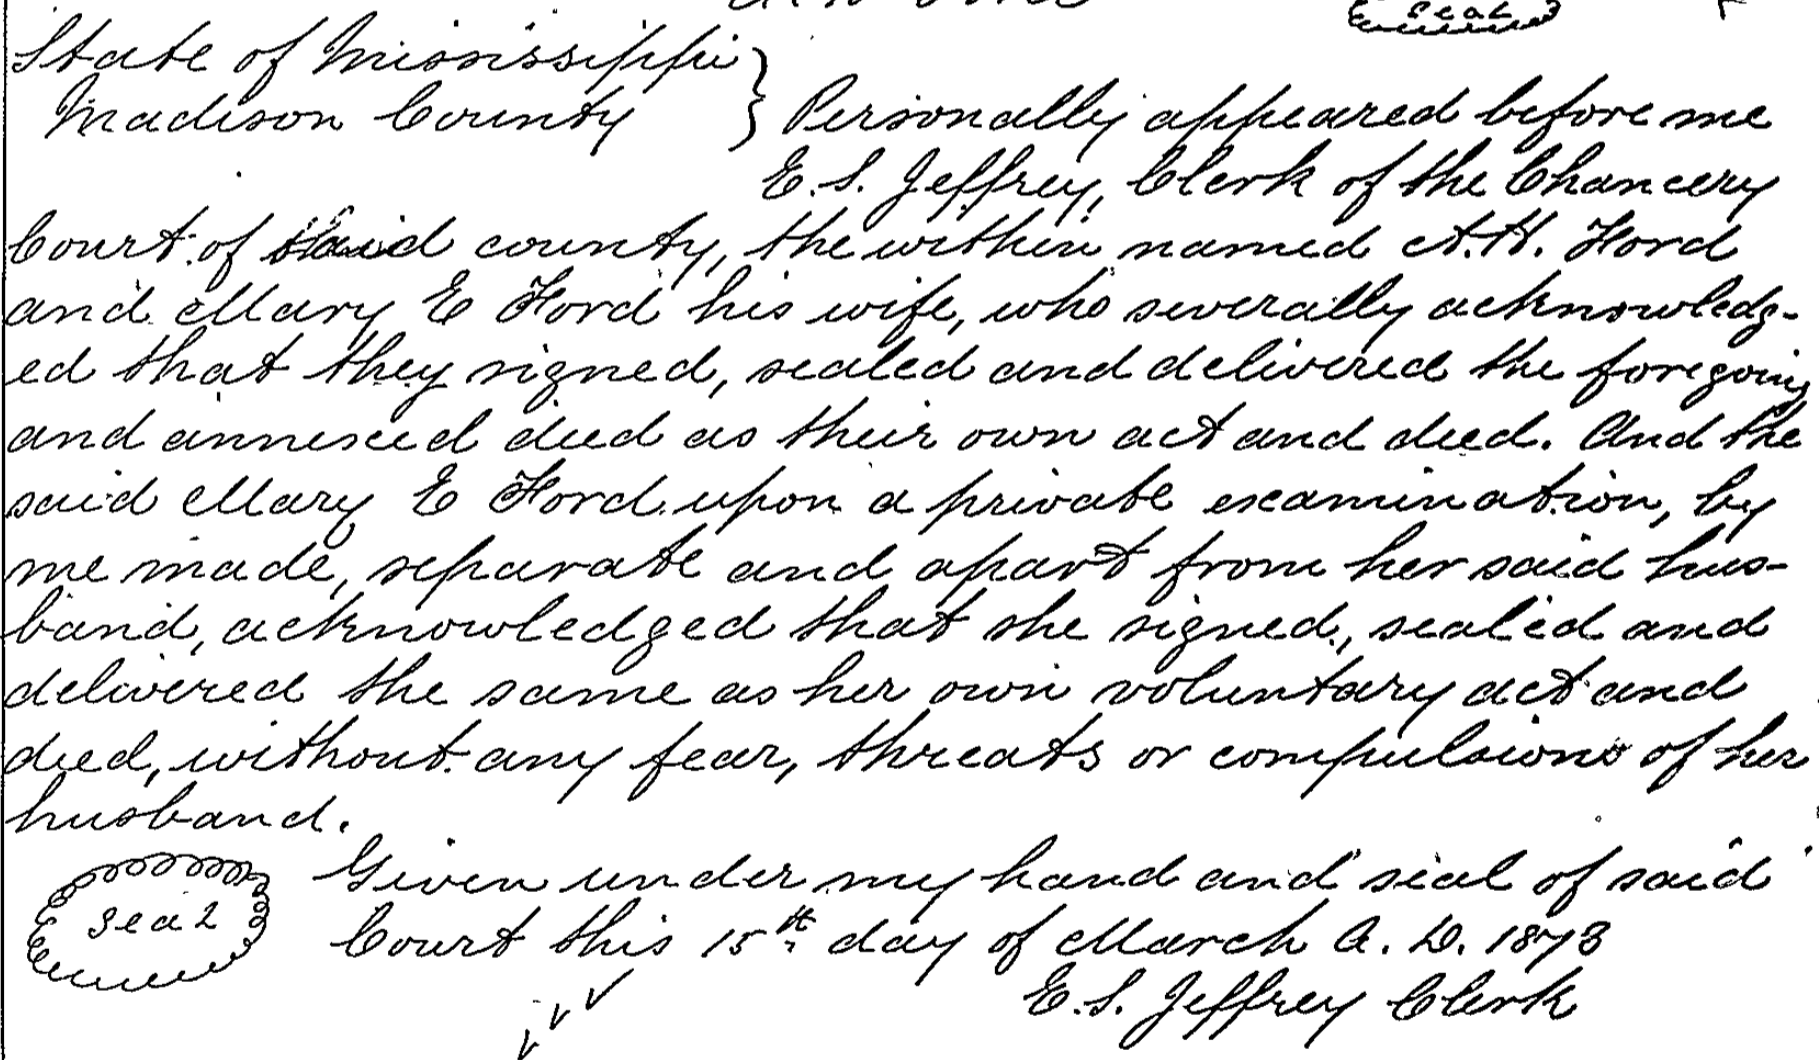 seal
State of Mississippi }
Madison County } Personally appeared before me
E. S. Jeffrey, Clerk of the Chancery
Court of said county, the within named A. H. Ford
and Mary E Ford his wife, who severally acknowledg-
ed that they signed, sealed and delivered the foregoing
and annexed deed as their own act and deed. And the
said Mary E Ford upon a private examination, by
me made, separate and apart from her said hus-
band, acknowledged that she signed, sealed and
delivered the same as her own voluntary act and
deed, without any fear, threats or compulsions of her
husband.
Given under my hand and seal of said
seal Court this 15th day of March A. D. 1873
E. S. Jeffrey Clerk